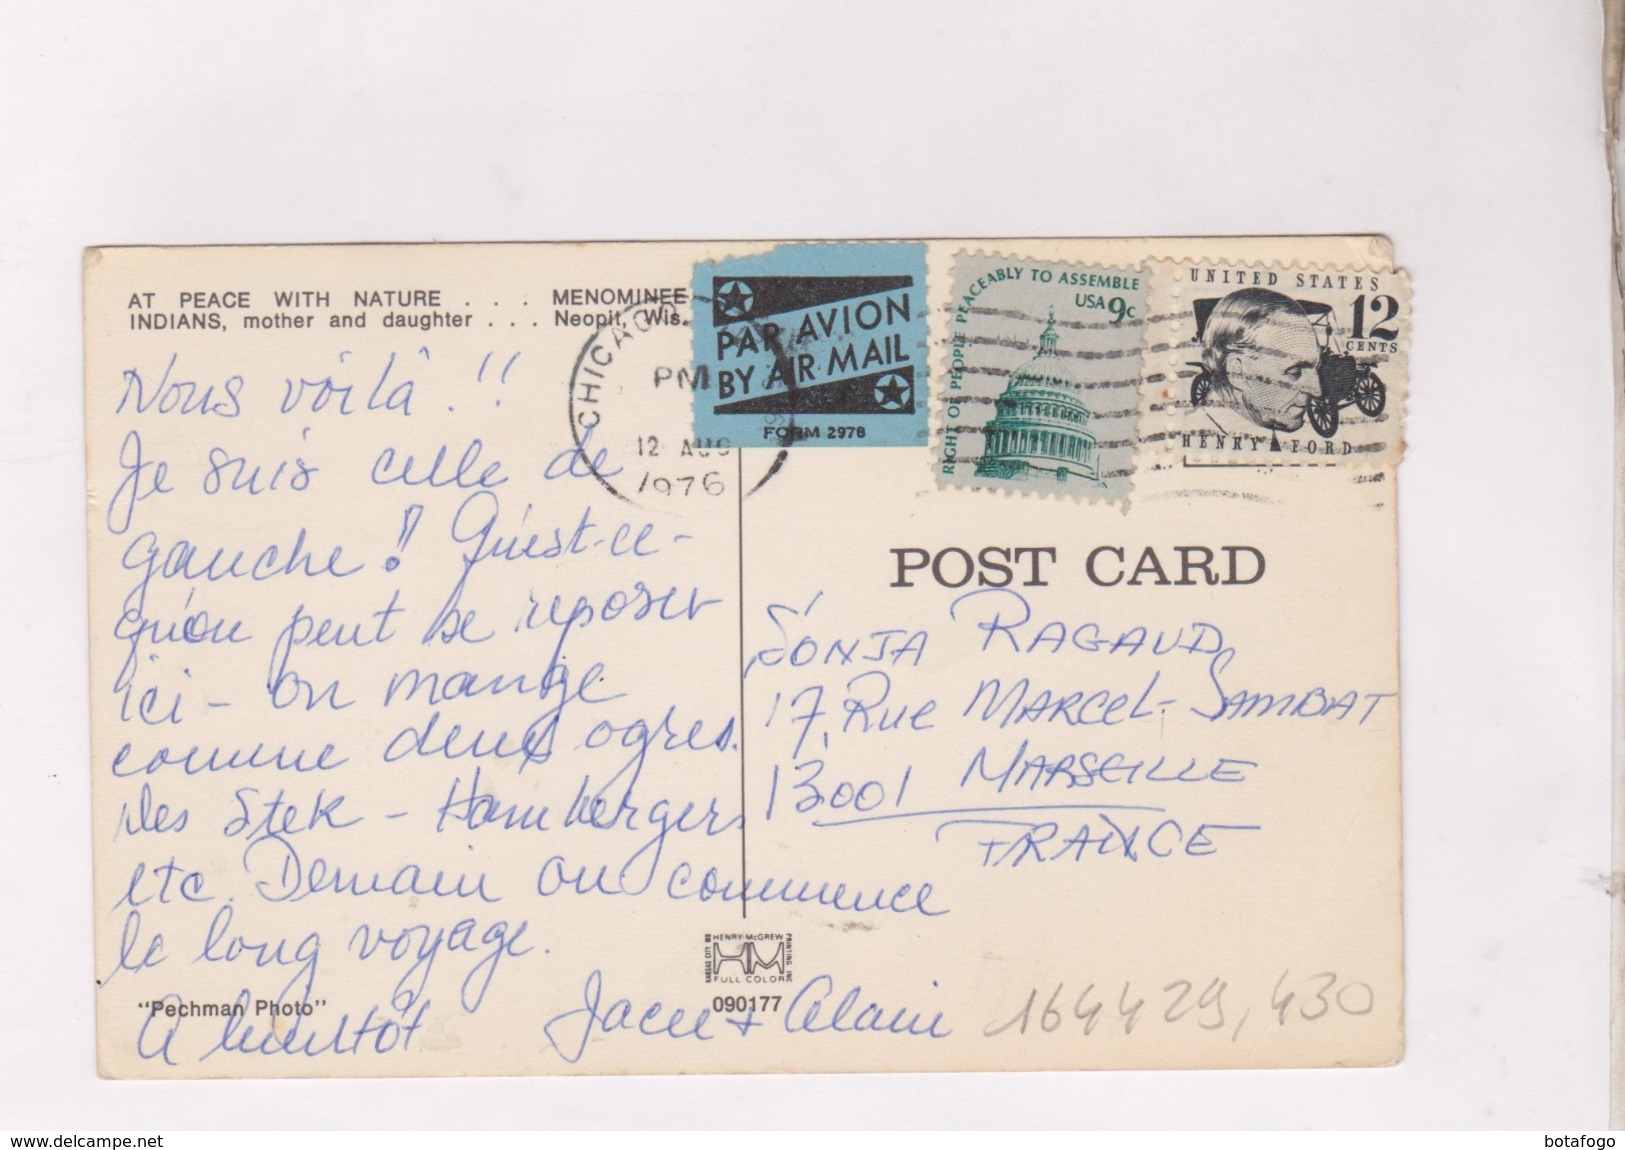 AT PEACE WITH NATURE . . . MENOMINEE
INDIANS, mother and daughter . . . Neopit, Wis.
CHICAGO
PM
12 AUG
1976
PAR AVION
BY AIR MAIL
FORM 2978
RIGHT OF PEOPLE PEACEABLY TO ASSEMBLE
USA 9c
UNITED STATES
12
CENTS
HENRY FORD
Nous voilà !!
Je suis celle de
gauche ! Qu'est-ce-
qu'on peut se reposer
ici - on mange
comme deux ogres.
Des Stek - Hambergers
etc. Demain on commence
le long voyage.
A bientôt
+ Alain
POST CARD
SONJA RAGAUD
17, Rue MARCEL-SAMBAT
13001 MARSEILLE
FRANCE
HENRY McGREW
PRINTING INC
KANSAS CITY MO
HM
FULL COLOR
090177
"Pechman Photo"
164429,430
www.delcampe.net
botafogo